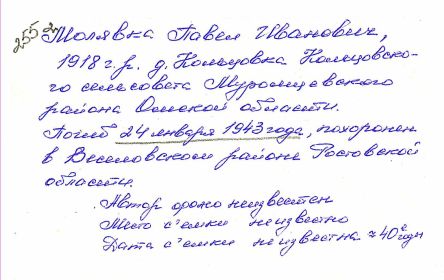 255
Молявка Павел Иванович,
1918 г. р. д. Кольцовка Кольцовско-
го сельсовета Муромцевского
района Омской области.
Погиб 24 января 1943 года, похоронен
в Веселовском районе Ростовской
области.
Автор фото неизвестен
Место съемки неизвестно
Дата съемки неизвестна ≈ 40е годы